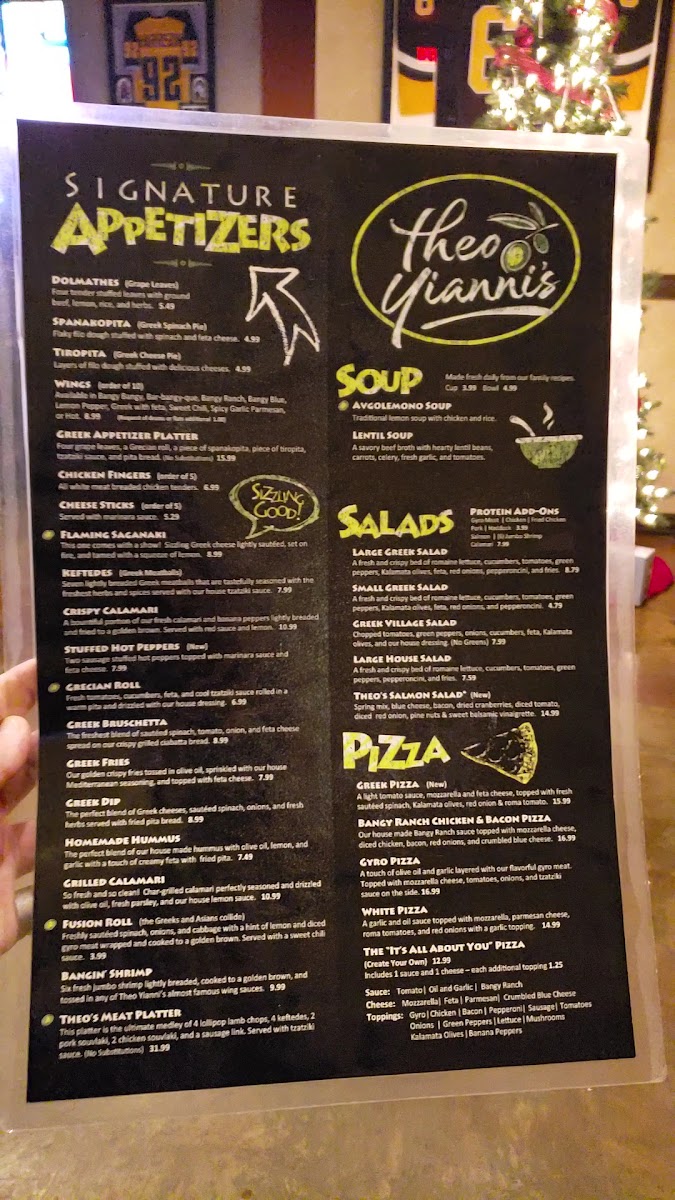 92
SIGNATURE
APPETIZERS
DOLMATHES (Grape Leaves)
Four tender stuffed leaves with ground
beef, lemon, rice, and herbs. 5.49
SPANAKOPITA (Greek Spinach Pie)
Flaky filo dough stuffed with spinach and feta cheese. 4.99
TIROPITA (Greek Cheese Pie)
Layers of filo dough stuffed with delicious cheeses. 4.99
WINGS (order of 10)
Available in Bangy Buffalo, Bar-bangy-que, Bangy Ranch, Bangy Blue,
Lemon Pepper, Greek with feta, Sweet Chili, Spicy Garlic Parmesan,
or Hot. 8.99
GREEK APPETIZER PLATTER
Four grape leaves, a Grecian roll, a piece of spanakopita, piece of tiropita,
tzatziki sauce, and pita bread. (No Substitutions) 15.99
CHICKEN FINGERS (order of 5)
All white meat breaded chicken tenders. 6.99
CHEESE STICKS (order of 5)
Served with marinara sauce. 5.29
SIZZLING
GOOD!
FLAMING SAGANAKI
This one comes with a show! Sizzling Greek cheese lightly sautéed, set on
fire, and tamed with a squeeze of lemon. 8.99
KEFTEDES (Greek Meatballs)
Seven lightly breaded Greek meatballs that are tastefully seasoned with the
freshest herbs and spices served with our house tzatziki sauce. 7.99
CRISPY CALAMARI
A bountiful portion of our fresh calamari and banana peppers lightly breaded
and fried to a golden brown. Served with red sauce and lemon. 10.99
STUFFED HOT PEPPERS (New)
Two sausage stuffed hot peppers topped with marinara sauce and
feta cheese. 7.99
GRECIAN ROLL
Fresh tomatoes, cucumbers, feta, and cool tzatziki sauce rolled in a
warm pita and drizzled with our house dressing. 6.99
GREEK BRUSCHETTA
The freshest blend of sautéed spinach, tomato, onion, and feta cheese
spread on our crispy grilled ciabatta bread. 8.99
GREEK FRIES
Our golden crispy fries tossed in olive oil, sprinkled with our house
Mediterranean seasoning, and topped with feta cheese. 7.99
GREEK DIP
The perfect blend of Greek cheeses, sautéed spinach, onions, and fresh
herbs served with fried pita bread. 8.99
HOMEMADE HUMMUS
The perfect blend of our house made hummus with olive oil, lemon, and
garlic with a touch of creamy feta with fried pita. 7.49
GRILLED CALAMARI
So fresh and so clean! Char-grilled calamari perfectly seasoned and drizzled
with olive oil, fresh parsley, and our house lemon sauce. 10.99
FUSION ROLL (the Greeks and Asians collide)
Freshly sautéed spinach, onions, and cabbage with a hint of lemon and diced
gyro meat wrapped and cooked to a golden brown. Served with a sweet chili
sauce. 3.99
BANGIN' SHRIMP
Six fresh jumbo shrimp lightly breaded, cooked to a golden brown, and
tossed in any of Theo Yianni's almost famous wing sauces. 9.99
THEO'S MEAT PLATTER
This platter is the ultimate medley of 4 lollipop lamb chops, 4 keftedes, 2
pork souvlaki, 2 chicken souvlaki, and a sausage link. Served with tzatziki
sauce. (No Substitutions) 31.99
Theo
Yianni's
SOUP
Made fresh daily from our family recipes.
Cup 3.99 Bowl 4.99
AVGOLEMONO SOUP
Traditional lemon soup with chicken and rice.
LENTIL SOUP
A savory beef broth with hearty lentil beans,
carrots, celery, fresh garlic, and tomatoes.
SALADS
PROTEIN ADD-ONS
Gyro Meat | Chicken | Fried Chicken
Pork | Haddock 3.99
Salmon | (6) Jumbo Shrimp
Calamari 7.99
LARGE GREEK SALAD
A fresh and crispy bed of romaine lettuce, cucumbers, tomatoes, green
peppers, Kalamata olives, feta, red onions, pepperoncini, and fries. 8.79
SMALL GREEK SALAD
A fresh and crispy bed of romaine lettuce, cucumbers, tomatoes, green
peppers, Kalamata olives, feta, red onions, and pepperoncini. 4.79
GREEK VILLAGE SALAD
Chopped tomatoes, green peppers, onions, cucumbers, feta, Kalamata
olives, and our house dressing. (No Greens) 7.99
LARGE HOUSE SALAD
A fresh and crispy bed of romaine lettuce, cucumbers, tomatoes, green
peppers, pepperoncini, and fries. 7.59
THEO'S SALMON SALAD* (New)
Spring mix, blue cheese, bacon, dried cranberries, diced tomato,
diced red onion, pine nuts & sweet balsamic vinaigrette. 14.99
PIZZA
GREEK PIZZA (New)
A light tomato sauce, mozzarella and feta cheese, topped with fresh
sautéed spinach, Kalamata olives, red onion & roma tomato. 15.99
BANGY RANCH CHICKEN & BACON PIZZA
Our house made Bangy Ranch sauce topped with mozzarella cheese,
diced chicken, bacon, red onions, and crumbled blue cheese. 16.99
GYRO PIZZA
A touch of olive oil and garlic layered with our flavorful gyro meat.
Topped with mozzarella cheese, tomatoes, onions, and tzatziki
sauce on the side. 16.99
WHITE PIZZA
A garlic and oil sauce topped with mozzarella, parmesan cheese,
roma tomatoes, and red onions with a garlic topping. 14.99
THE "IT'S ALL ABOUT YOU" PIZZA
(Create Your Own) 12.99
Includes 1 sauce and 1 cheese – each additional topping 1.25
Sauce: Tomato | Oil and Garlic | Bangy Ranch
Cheese: Mozzarella | Feta | Parmesan | Crumbled Blue Cheese
Toppings: Gyro | Chicken | Bacon | Pepperoni | Sausage | Tomatoes
Onions | Green Peppers | Lettuce | Mushrooms
Kalamata Olives | Banana Peppers